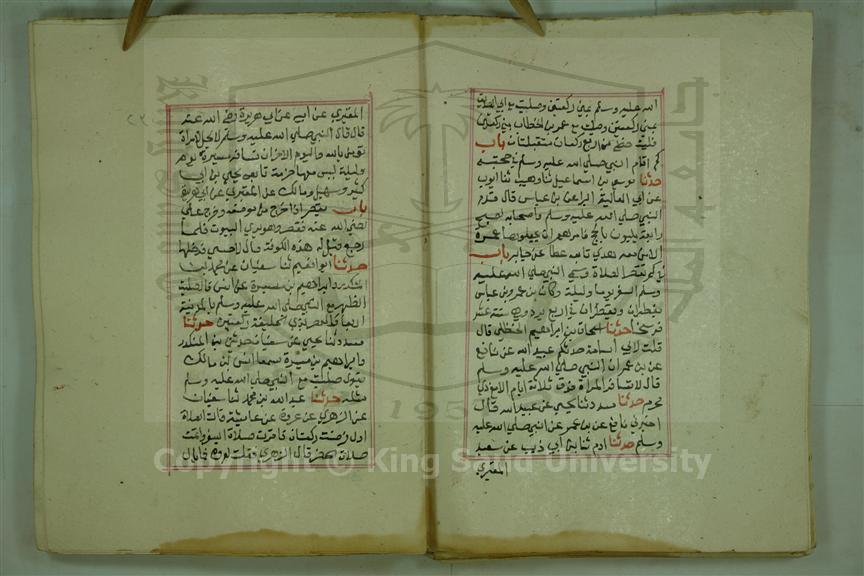 الله عليه وسلم بمنى ركعتين وصليت مع ابي بكر الصديق
بمنى ركعتين وصليت مع عمر بن الخطاب بمنى ركعتين
فليت حظي من اربع ركعات ركعتان متقبلتان باب
كم اقام النبي صلى الله عليه وسلم في حجته
حدثنا موسى بن اسماعيل ثنا وهيب ثنا ايوب
عن ابي العالية البراء عن بن عباس قال قدم
النبي صلى الله عليه وسلم واصحابه لصبح
رابعة يلبون بالحج فامرهم ان يجعلوها عمرة
الا من معه هدي تابعه عطا عن جابر باب
في كم تقصر الصلاة وسمى النبي صلى الله عليه
وسلم السفر يوما وليلة وكان بن عمر وبن عباس
يقصران ويفطران في اربع برد وهو ستة عشر
فرسخا حدثنا اسحاق بن ابراهيم الحنظلي قال
قلت لابي اسامة حدثكم عبيد الله عن نافع
عن بن عمر ان النبي صلى الله عليه وسلم
قال لا تسافر المراة فوق ثلاثة ايام الا مع ذي
محرم حدثنا مسدد ثنا يحيى عن عبيد الله قال
اخبرني نافع عن بن عمر عن النبي صلى الله عليه
وسلم حدثنا ادم ثنا ابن ابي ذيب عن سعيد
المقبري
المقبري عن ابيه عن ابي هريرة رضي الله عنه
قال قال النبي صلى الله عليه وسلم لا يحل لامراة
تومن بالله واليوم الاخر ان تسافر مسيرة يوم
وليلة ليس معها حرمة تابعه يحيى بن ابي
كثير وسهيل ومالك عن المقبري عن ابي هريرة
باب يقصر اذا خرج من موضعه وخرج علي
رضي الله عنه فقصر وهو يرى البيوت فلما
رجع قيل له هذه الكوفة قال لا حتى ندخلها
حدثنا ابو نعيم ثنا سفيان عن محمد بن
المنكدر وابراهيم بن ميسرة عن انس قال صليت
الظهر مع النبي صلى الله عليه وسلم بالمدينة
اربعا والعصر بذي الحليفة ركعتين حدثنا
مسدد ثنا يحيى عن سفيان حدثني بن المنكدر
وابراهيم بن ميسرة سمعا انس بن مالك
يقول صليت مع النبي صلى الله عليه وسلم
مثله حدثنا عبد الله بن محمد ثنا سفيان
عن الزهري عن عروة عن عايشة قالت الصلاة
اول ما فرضت ركعتان فاقرت صلاة السفر واتمت
صلاة الحضر قال الزهري فقلت لعروة فما بال
Copyright © King Saud University
1957